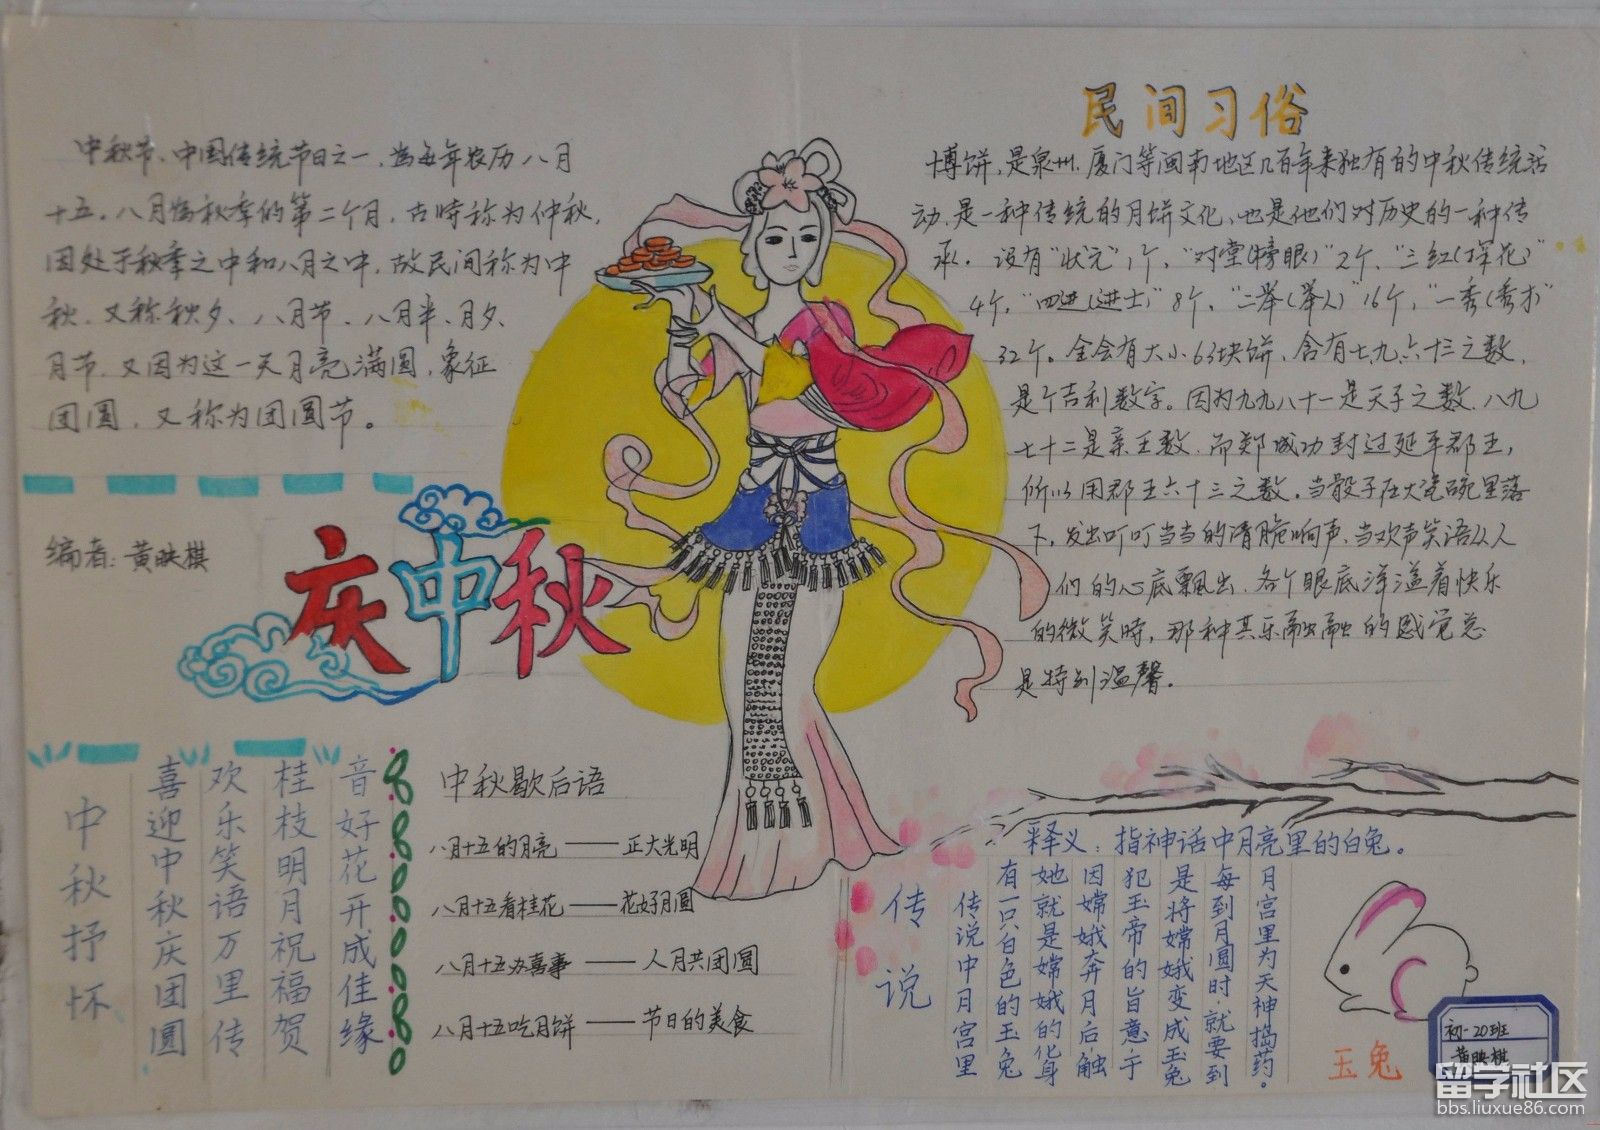 中秋节、中国传统节日之一,为每年农历八月
十五。八月为秋季的第二个月,古時称为仲秋,
因处于秋季之中和八月之中,故民间称为中
秋、又称秋夕、八月节、八月半、月夕、
月节,又因为这一天月亮满圆,象征
团圆,又称为团圆节。
编者:黄映棋
庆中秋
民间习俗
博饼,是泉州、厦门等闽南地区几百年来独有的中秋传统活
动,是一种传统的月饼文化、也是他们对历史的一种传
承。设有“状元”1个,“对堂(榜眼)”2个、“三红(探花)”
4个,“四进(进士)”8个,“二举(举人)”16个,“一秀(秀才)”
32个。全会有大小63块饼,含有七九六十三之数,
是个吉利数字。因为九九八十一是天子之数,八九
七十二是亲王数,而郑成功封过延平郡王,
所以用郡王六十三之数。当骰子在大瓷碗里落
下,发出叮叮当当的清脆响声、当欢声笑语从人
们的心底飘出,各个眼底洋溢着快乐
的微笑時,那种其乐融融的感觉总
是特别温馨。
中秋抒怀
喜迎中秋庆团圆
欢乐笑语万里传
桂枝明月祝福贺
音好花开成佳缘
中秋歇后语
八月十五的月亮——正大光明
八月十五看桂花——花好月圆
八月十五办喜事——人月共团圆
八月十五吃月饼——节日的美食
释义:指神话中月亮里的白兔。
传说
传说中月宫里
有一只白色的玉兔
她就是嫦娥的化身
因嫦娥奔月后,触
犯玉帝的旨意,于
是将嫦娥变成玉兔
每到月圆时,就要到
月宫里为天神捣药。
玉兔
初一20班
黄映棋
留学社区
bbs.liuxue86.com